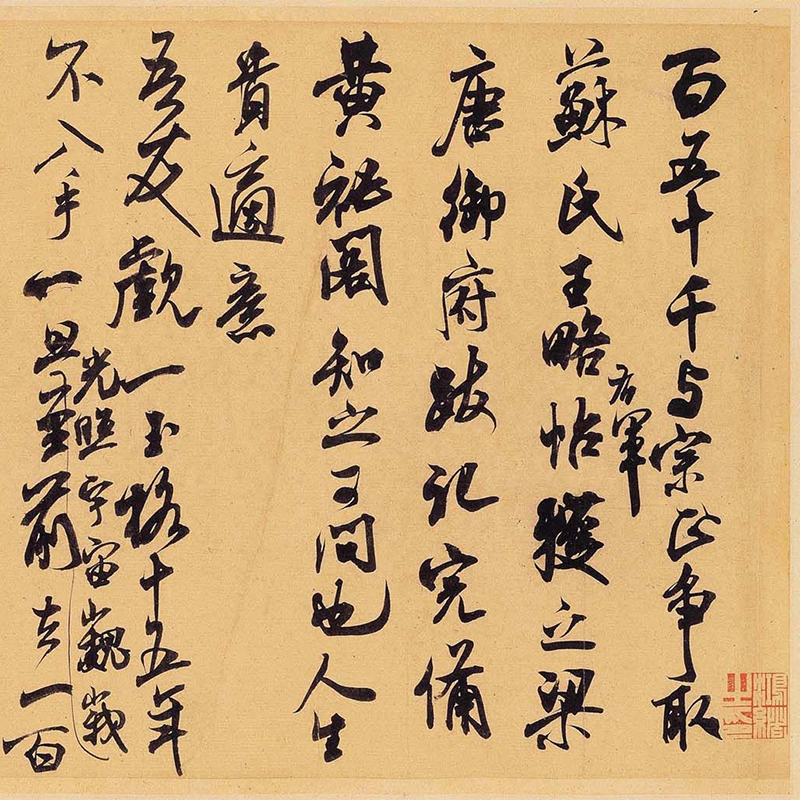 百五十千与宗正爭取
蘇氏王略帖獲之梁
右軍
唐御府跋記完備
黃祕閣知之可問也人生
貴適意
吾友覷一玉格十五年
光照宇宙巍峩
不入手一旦至前去一百